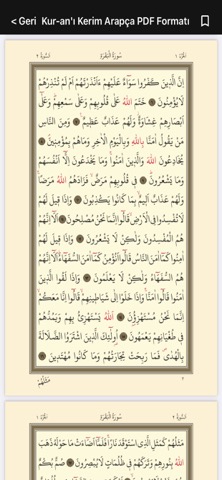 < Geri Kur-an'ı Kerim Arapça PDF Formatı
الجزء ١ سورة البقرة السورة ٢
إِنَّ الَّذِينَ كَفَرُوا سَوَاءٌ عَلَيْهِمْ ءَاَنْذَرْتَهُمْ اَمْ لَمْ تُنْذِرْهُمْ
لَا يُؤْمِنُونَ ۝ خَتَمَ اللّٰهُ عَلٰى قُلُوبِهِمْ وَعَلٰى سَمْعِهِمْ وَعَلٰى
اَبْصَارِهِمْ غِشَاوَةٌ وَلَهُمْ عَذَابٌ عَظِيمٌ ۝ وَمِنَ النَّاسِ
مَنْ يَقُولُ اٰمَنَّا بِاللّٰهِ وَبِالْيَوْمِ الْاٰخِرِ وَمَا هُمْ بِمُؤْمِنِينَ ۝
يُخَادِعُونَ اللّٰهَ وَالَّذِينَ اٰمَنُوا وَمَا يَخْدَعُونَ اِلَّا اَنْفُسَهُمْ
وَمَا يَشْعُرُونَ ۝ فِي قُلُوبِهِمْ مَرَضٌ فَزَادَهُمُ اللّٰهُ مَرَضًا
وَلَهُمْ عَذَابٌ اَلِيمٌ بِمَا كَانُوا يَكْذِبُونَ ۝ وَاِذَا قِيلَ لَهُمْ
لَا تُفْسِدُوا فِي الْاَرْضِ قَالُوا اِنَّمَا نَحْنُ مُصْلِحُونَ ۝ اَلَا اِنَّهُمْ
هُمُ الْمُفْسِدُونَ وَلٰكِنْ لَا يَشْعُرُونَ ۝ وَاِذَا قِيلَ لَهُمْ
اٰمِنُوا كَمَا اٰمَنَ النَّاسُ قَالُوا اَنُؤْمِنُ كَمَا اٰمَنَ السُّفَهَاءُ اَلَا اِنَّهُمْ
هُمُ السُّفَهَاءُ وَلٰكِنْ لَا يَعْلَمُونَ ۝ وَاِذَا لَقُوا الَّذِينَ
اٰمَنُوا قَالُوا اٰمَنَّا وَاِذَا خَلَوْا اِلٰى شَيَاطِينِهِمْ قَالُوا اِنَّا مَعَكُمْ
اِنَّمَا نَحْنُ مُسْتَهْزِؤُنَ ۝ اَللّٰهُ يَسْتَهْزِئُ بِهِمْ وَيَمُدُّهُمْ
فِي طُغْيَانِهِمْ يَعْمَهُونَ ۝ اُولٰئِكَ الَّذِينَ اشْتَرَوُا الضَّلَالَةَ
بِالْهُدٰى فَمَا رَبِحَتْ تِجَارَتُهُمْ وَمَا كَانُوا مُهْتَدِينَ ۝
٢ مَثَلُهُمْ
الجزء ١ سورة البقرة السورة ٢
مَثَلُهُمْ كَمَثَلِ الَّذِي اسْتَوْقَدَ نَارًا فَلَمَّا اَضَاءَتْ مَا حَوْلَهُ ذَهَبَ
اللّٰهُ بِنُورِهِمْ وَتَرَكَهُمْ فِي ظُلُمَاتٍ لَا يُبْصِرُونَ ۝ صُمٌّ بُكْمٌ